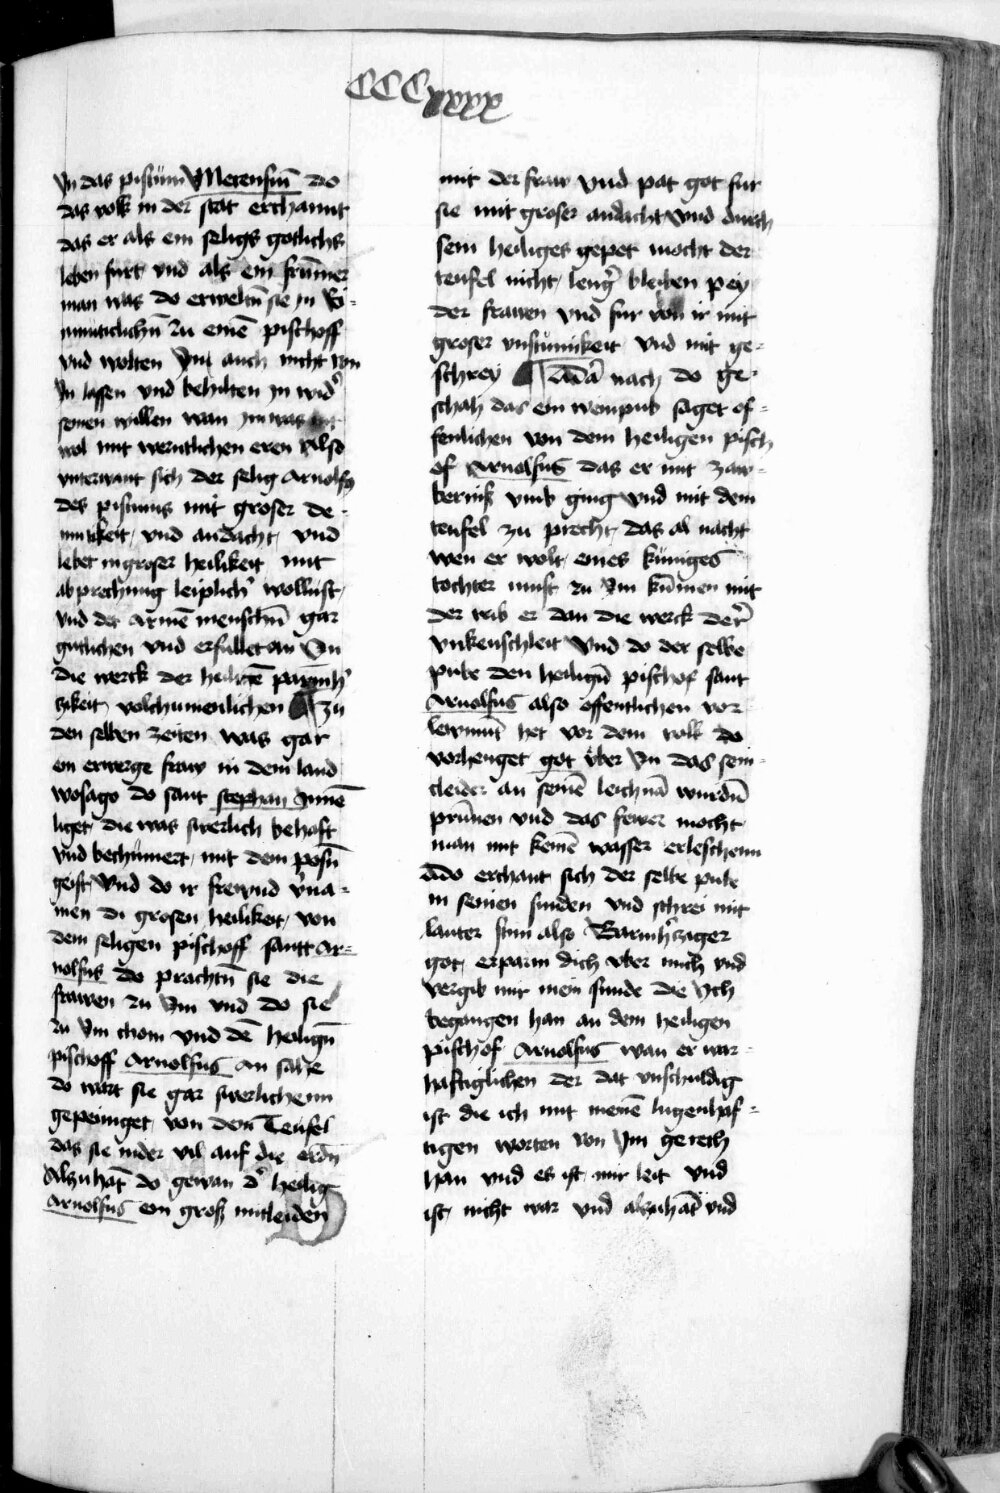 CCCxxxx
Yn das pistum Metensim̄ do
das volk in der stat erchannt
das er als ein seligs gotlichs
leben furt vnd als ein frum̄er
man was do erweltn̄ sie jn Ei-
nmuticlichn̄ zu einē pischoff
vnd wolten Ym auch nicht von
Yn lassen vnd behilten jn wid'
seinen willen wan ym was
wol mit werntlichen eren Also
vnterwant sich der selig Arnolfus
des pistums mit groser de-
mutikeit vnd andacht vnd
lebet in groser heilikeit mit
abprechung leiplich' wollust
vnd det Armē menschn̄ gar
gutlichen vnd erfullet an Yn
die werck der heiligē parmh'
tzikeit volchumenlichen Zu
den selben zeiten was gar
ein erberge fraw in dem land
wosago do sant stephan Jnnē
liget die was swerlich behaft
vnd bechum̄ert mit dem posn̄
geist Vnd do ir frewnd v'na-
men di grosen heilikeit von
dem seligen pischoff santt Ar-
nolfus do prachtn̄ sie die
frawen zu Ym vnd do sie
zu Ym chom vnd dē heilign̄
pischoff Arnolfus an sahe
do wart sie gar swerlichenn
gepeiniget von dem Teufel
das sie nider vil auf die erdn̄
Alzuhāt do gewan d' heilig
Arnolfus ein groß mitleiden
mit der fraw vnd pat got fur
sie mit groser andacht vnd durch
sein heiliges gepet mocht der
teufel nicht leng' bleiben pey
der frawen vnd fur von ir mit
groser vnstumikeit vnd mit ge-
schrey Dar nach do ge-
schah das ein wempub saget of-
fenlichen von dem heiligen pisch
of Arnolfus das er mit zaw-
berniß vmb ging vnd mit dem
teufel zu precht das al nacht
wen er wolt eines kuniges
tochter must zu Ym kum̄en mit
der trib er dan die werck der
vnkeuschheit Vnd do der selbe
pube den heilign̄ pischof sant
Arnolfus also offentlichen vor
lewmut het vor dem volk do
vorhenget got vber Yn das sein
cleider an seinē leichnā wurdn̄
prin̄en vnd das fewer mocht
man mit keinē wasser erleschenn
Also erchant sich der selbe pube
in seinen sunden vnd schrei mit
lauter stim also Barmh'tzager
got erparm dich vber mich vnd
vergib mir mein sunde die Ych
begangen han an dem heiligen
pischof Arnolfus wan er war-
haftiglichen der dat vnschuldig
ist die ich mit meinē lugenhaf-
tigen worten von Ym gerech
han vnd es ist mir leit vnd
ist nicht war vnd alzuhāt vnd